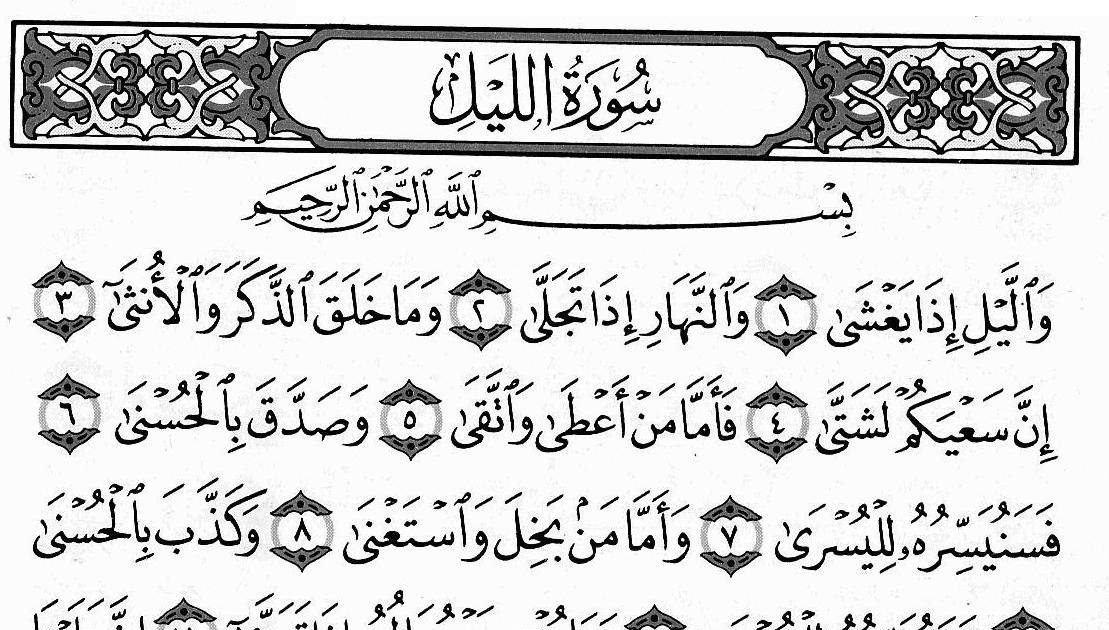 سُورَةُ اللَّيْلِ
بِسْمِ ٱللَّهِ ٱلرَّحْمَٰنِ ٱلرَّحِيمِ
وَٱلَّيْلِ إِذَا يَغْشَىٰ ١ وَٱلنَّهَارِ إِذَا تَجَلَّىٰ ٢ وَمَا خَلَقَ ٱلذَّكَرَ وَٱلْأُنثَىٰٓ ٣
إِنَّ سَعْيَكُمْ لَشَتَّىٰ ٤ فَأَمَّا مَنْ أَعْطَىٰ وَٱتَّقَىٰ ٥ وَصَدَّقَ بِٱلْحُسْنَىٰ ٦
فَسَنُيَسِّرُهُۥ لِلْيُسْرَىٰ ٧ وَأَمَّا مَنۢ بَخِلَ وَٱسْتَغْنَىٰ ٨ وَكَذَّبَ بِٱلْحُسْنَىٰ